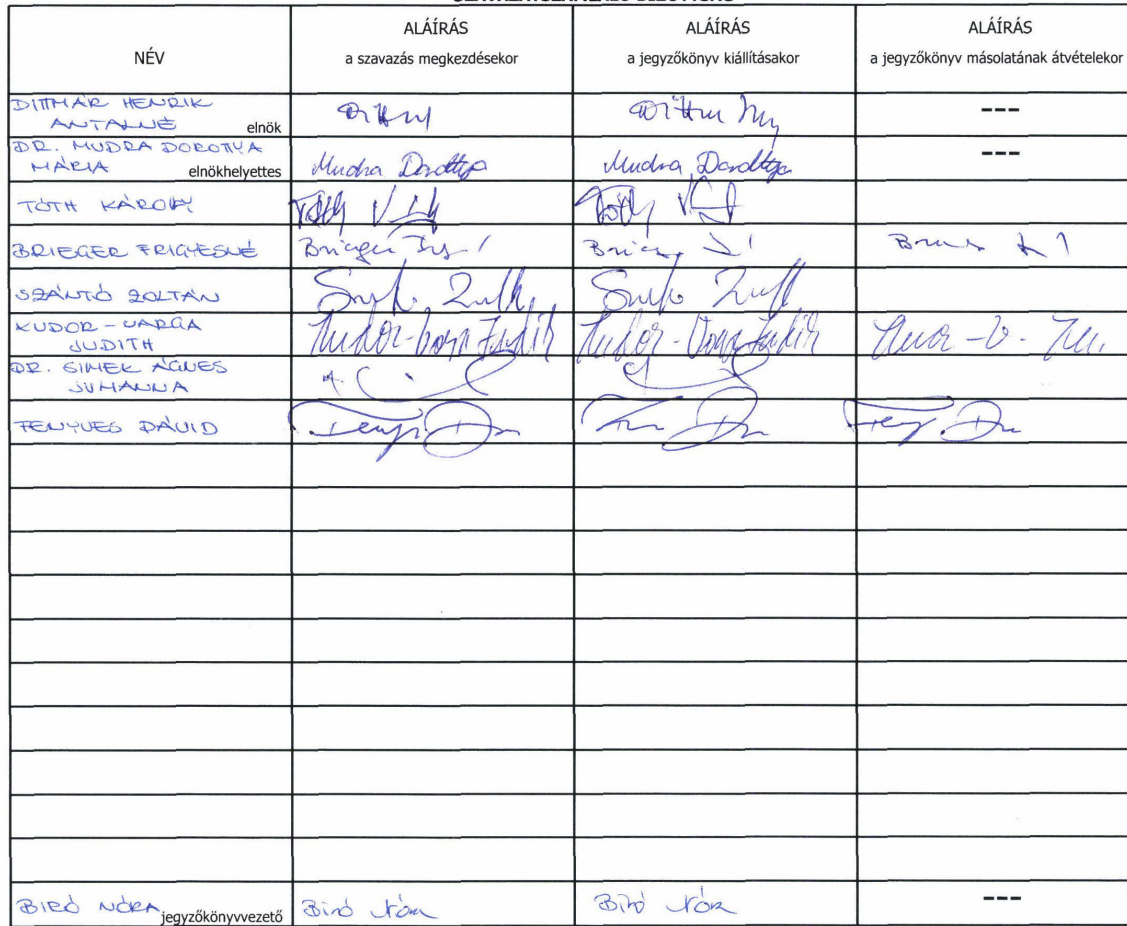 NÉV
ALÁÍRÁS
a szavazás megkezdésekor
ALÁÍRÁS
a jegyzőkönyv kiállításakor
ALÁÍRÁS
a jegyzőkönyv másolatának átvételekor
DITTMÁR HENRIK
ANTALNÉ elnök
---
DR. MUDRA DOROTTYA
MÁRIA elnökhelyettes
Mudra Dorottya
Mudra Dorottya
---
TÓTH KÁROLY
Tóth
Tóth
BRIEGER FRIGYESNÉ
Brieger
SZÁNTÓ ZOLTÁN
KUDOR-VARGA
JUDITH
Kudor-Varga Judith
Kudor-Varga Judith
DR. SIMEK ÁGNES
JUHANNA
FENYVES DÁVID
BIRÓ NÓRA jegyzőkönyvvezető
Biró Nóra
Biró Nóra
---